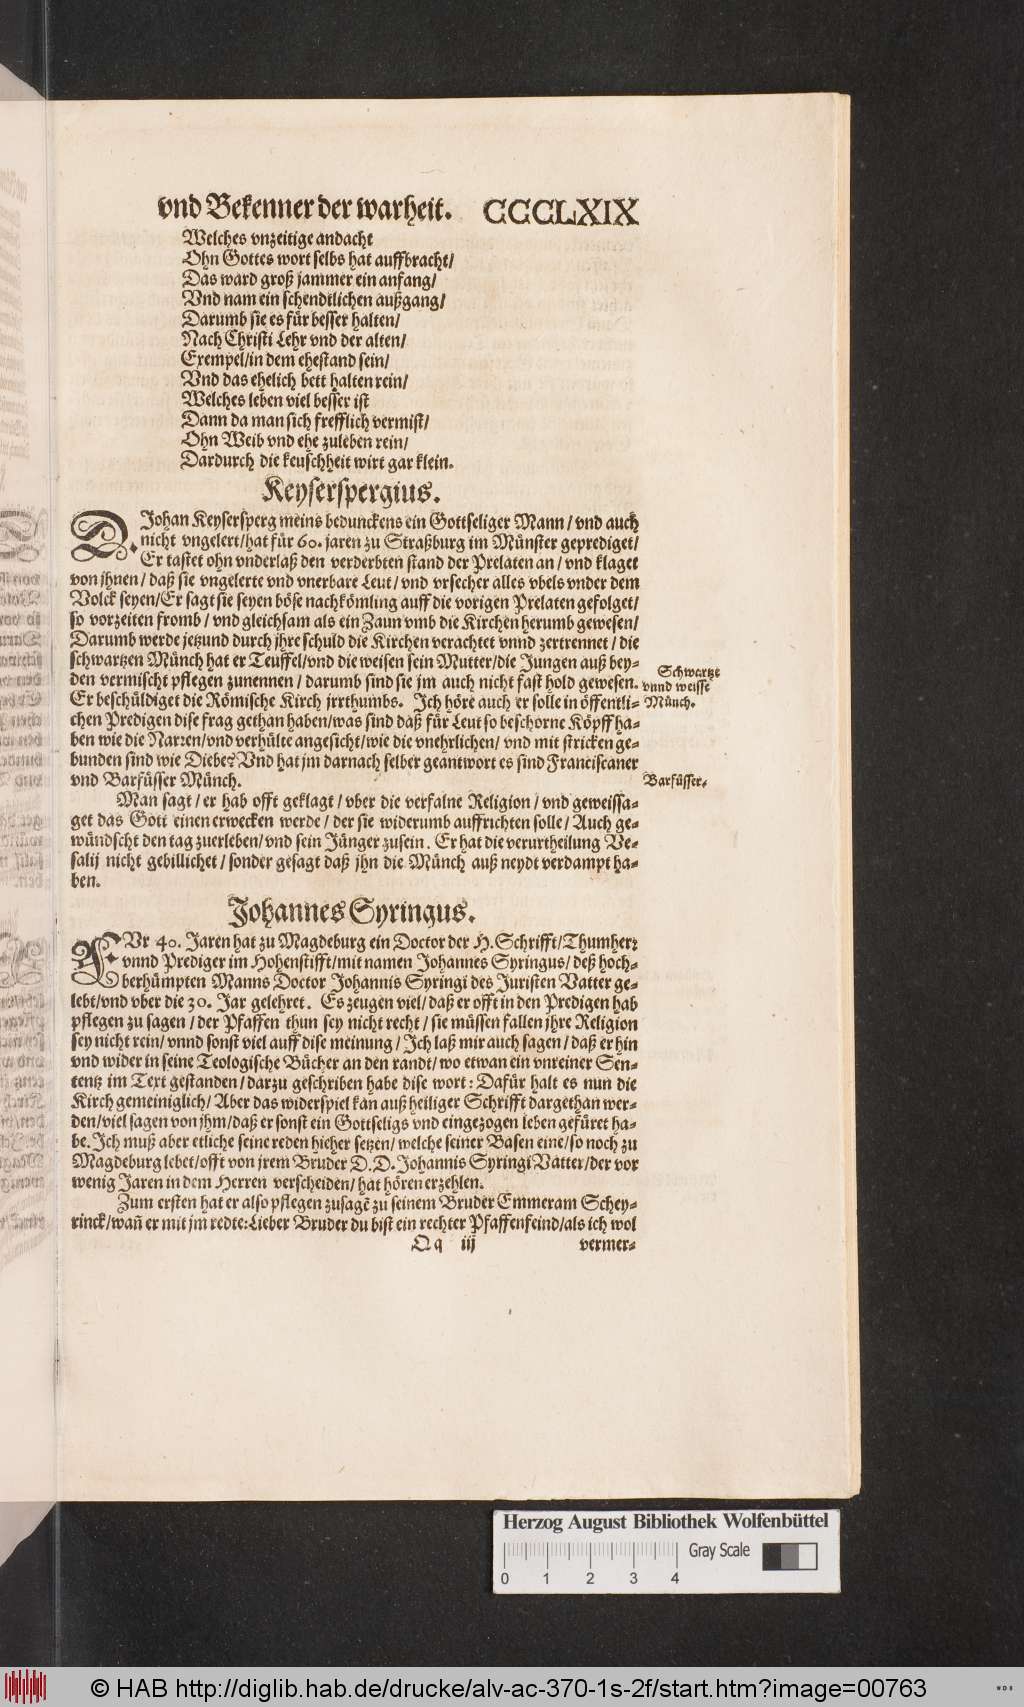 vnd Bekenner der warheit. CCCCLXIX
Welches vnzeitige andacht
Ohn Gottes wort selbs hat auffbracht/
Das ward groß jammer ein anfang/
Vnd nam ein schendtlichen außgang/
Darumb sie es für besser halten/
Nach Christi Lehr vnd der alten/
Exempel/in dem ehestand sein/
Vnd das ehelich bett halten rein/
Welches leben viel besser ist
Dann da man sich frefflich vermist/
Ohn Weib vnd ehe zuleben rein/
Dardurch die keuschheit wirt gar klein.
Keyserspergius.
D. Johan Keysersperg meins bedunckens ein Gottseliger Mann/vnd auch
nicht vngelert/hat für 60. jaren zu Straßburg im Münster geprediget/
Er tastet ohn vnderlaß den verderbten stand der Prelaten an/vnd klaget
von jhnen/daß sie vngelerte vnd vnerbare Leut/vnd vrsecher alles vbels vnder dem
Volck seyen/Er sagt sie seyen böse nachkömling auff die vorigen Prelaten gefolget/
so vorzeiten fromb/vnd gleichsam als ein Zaun vmb die Kirchen herumb gewesen/
Darumb werde jetzund durch jhre schuld die Kirchen verachtet vnnd zertrennet/die
schwartzen Münch hat er Teuffel/vnd die weisen sein Mutter/die Jungen auß bey-
den vermischt pflegen zunennen/darumb sind sie jm auch nicht fast hold gewesen.
Er beschüldiget die Römische Kirch jrrthumbs. Ich höre auch er solle in öffentli-
chen Predigen dise frag gethan haben/was sind daß für Leut so beschorne Köpff ha-
ben wie die Narren/vnd verhülte angesicht/wie die vnehrlichen/vnd mit stricken ge-
bunden sind wie Diebe? Vnd hat jm darnach selber geantwort es sind Franciscaner
vnd Barfüsser Münch.
Schwartze
vnnd weisse
Münch.
Barfüsser.
Man sagt/er hab offt geklagt/vber die verfalne Religion/vnd geweissa-
get das Gott einen erwecken werde/der sie widerumb auffrichten solle/Auch ge-
wündscht den tag zuerleben/vnd sein Jünger zusein. Er hat die verurtheilung Ve-
salij nicht gebillichet/sonder gesagt daß jhn die Münch auß neydt verdampt ha-
ben.
Johannes Syringus.
FVr 40. Jaren hat zu Magdeburg ein Doctor der H. Schrifft/Thumherr
vnnd Prediger im Hohenstifft/mit namen Johannes Syringus/deß hoch-
berhümpten Manns Doctor Johannis Syringi des Juristen Vatter ge-
lebt/vnd vber die 30. Jar gelehret. Es zeugen viel/daß er offt in den Predigen hab
pflegen zu sagen/der Pfaffen thun sey nicht recht/sie müssen fallen jhre Religion
sey nicht rein/vnnd sonst viel auff dise meinung/Ich laß mir auch sagen/daß er hin
vnd wider in seine Teologische Bücher an den randt/wo etwan ein vnreiner Sen-
tentz im Text gestanden/darzu geschriben habe dise wort: Dafür halt es nun die
Kirch gemeiniglich/Aber das widerspiel kan auß heiliger Schrifft dargethan wer-
den/viel sagen von jhm/daß er sonst ein Gottseligs vnd eingezogen leben gefüret ha-
be. Ich muß aber etliche seine reden hieher setzen/welche seiner Basen eine/so noch zu
Magdeburg lebet/offt von jrem Bruder D. D. Johannis Syringi Vatter/der vor
wenig Jaren in dem Herren verscheiden/hat hören erzehlen.
Zum ersten hat er also pflegen zusagē zu seinem Bruder Emmeram Schey-
rinck/wañ er mit jm redte: Lieber Bruder du bist ein rechter Pfaffenfeind/als ich wol
Qq iij vermer-
Herzog August Bibliothek Wolfenbüttel
Gray Scale
0 1 2 3 4
© HAB http://diglib.hab.de/drucke/alv-ac-370-1s-2f/start.htm?image=00763